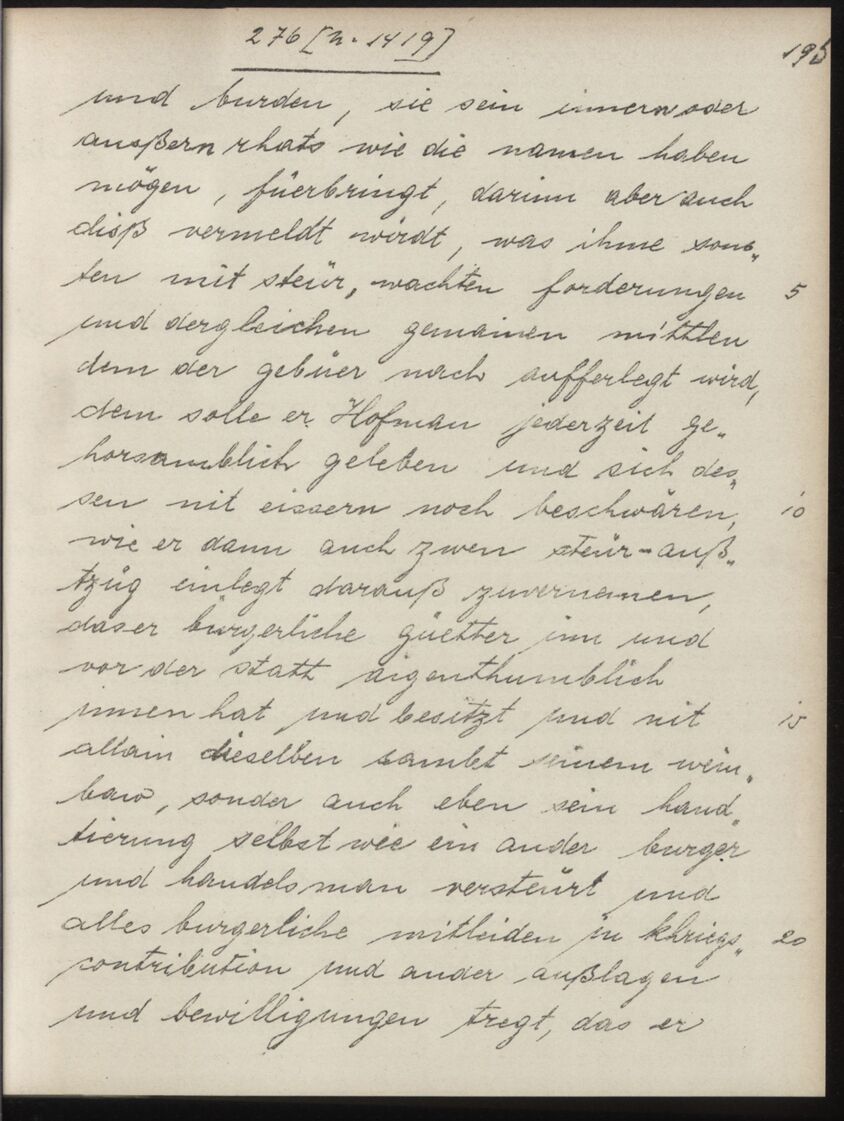 276 [n. 1419]
195
und burden, sie sein innern oder
außern rhats wie die namen haben
mögen, füerbringt, darinn aber auch
diß vermeldt wirdt, was ihme sons„
ten mit steür, wachten forderungen 5
und dergleichen gemainen mittlen
dem der gebüer nach aufferlegt wird,
dem solle er Hofman jederzeit ge„
horsamblich geleben und sich des„
sen nit eissern noch beschwären, 10
wie er dann auch zwen steür-auß„
tzüg einlegt darauß zuvernemen,
das er burgerliche güetter inn und
vor der statt aigenthumblich
innen hat und besitzt und nit 15
allain dieselben sambt seinem wein„
baw, sonder auch eben sein hand„
tierung selbst wie ein ander burger
und handelsman versteürt und
alles burgerliche mitleiden in khriegs„ 20
contribution und ander außlagen
und bewilligungen tregt, das er